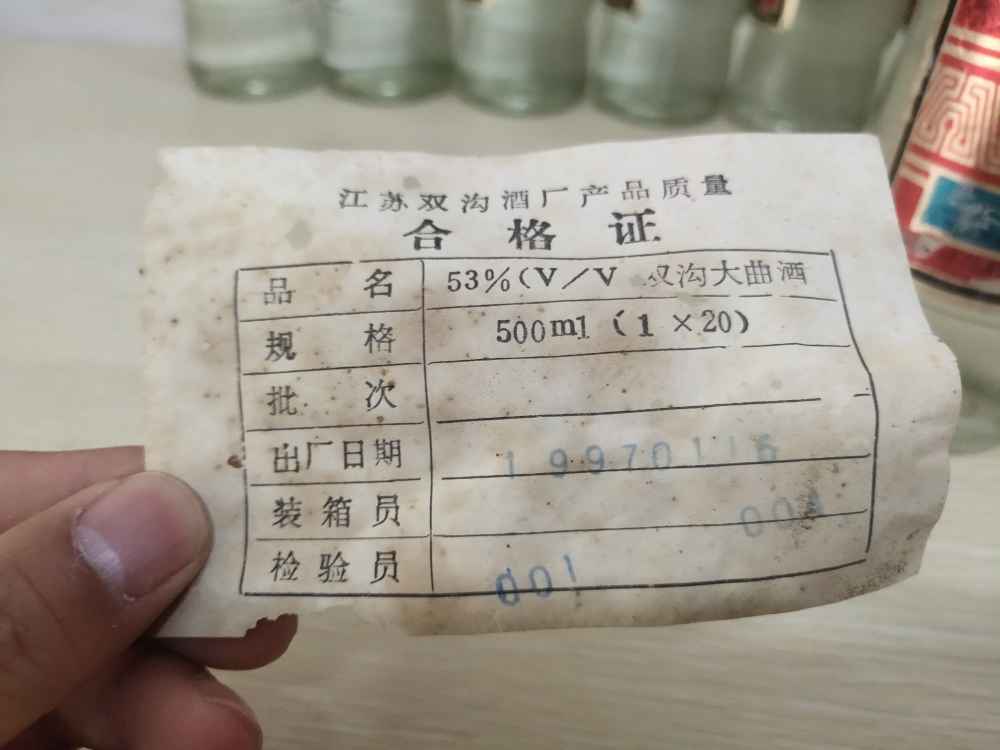 江苏双沟酒厂产品质量
合格证
品名 53%(V/V 双沟大曲酒
规格 500ml (1×20)
批次
出厂日期 19970116
装箱员
检验员 001